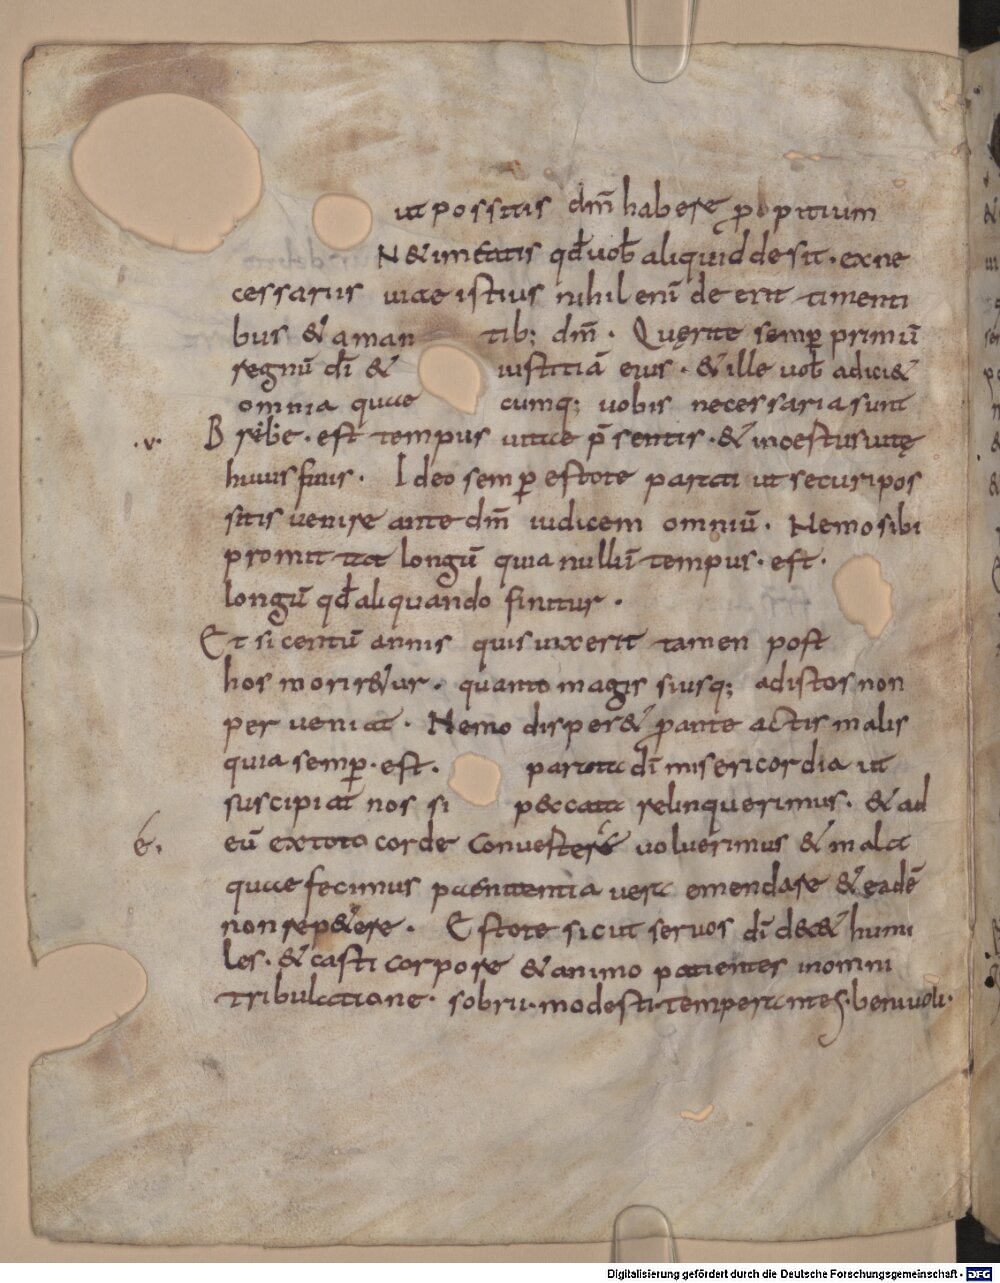 ut possitis dm̄ habere propitium
N& imeatis qđ uob aliquid desit · ex ne
cessariis uitae istius nihil enī deerit timenti
bus & aman tib; dm̄ · Quęrite semp primū
regnū dī & iustitiā eius · & ille uob adici&
omnia quae cumq; uobis necessaria sunt
.v. Breue · est tempus uitae p̄sentis · & incestus uitę
huius finis · Ideo semp estote parati ut securi pos
sitis uenire ante dm̄ iudicem omniū · Nemo sibi
promittat longū quia nullū tempus · est ·
longū qđ aliquando finitur ·
Et si centū annis quis uixerit tamen post
hos morir&ur · quanto magis siusq; ad istos non
perueniat · Nemo disper& p ante actis malis
quia semp · est · parata dī misericordia ut
suscipiat nos si peccata relinquerimus · & ad
eū ex toto corde conuertere uoluerimus & mala
quae fecimus paenitentia uera emendare & eadē
non rep&ere · Estote sicut seruos dī dec& humi
les · & casti corpore & animo patientes in omni
tribulatione · sobrii · modesti · temperantes · beniuoli ·
Digitalisierung gefördert durch die Deutsche Forschungsgemeinschaft - DFG